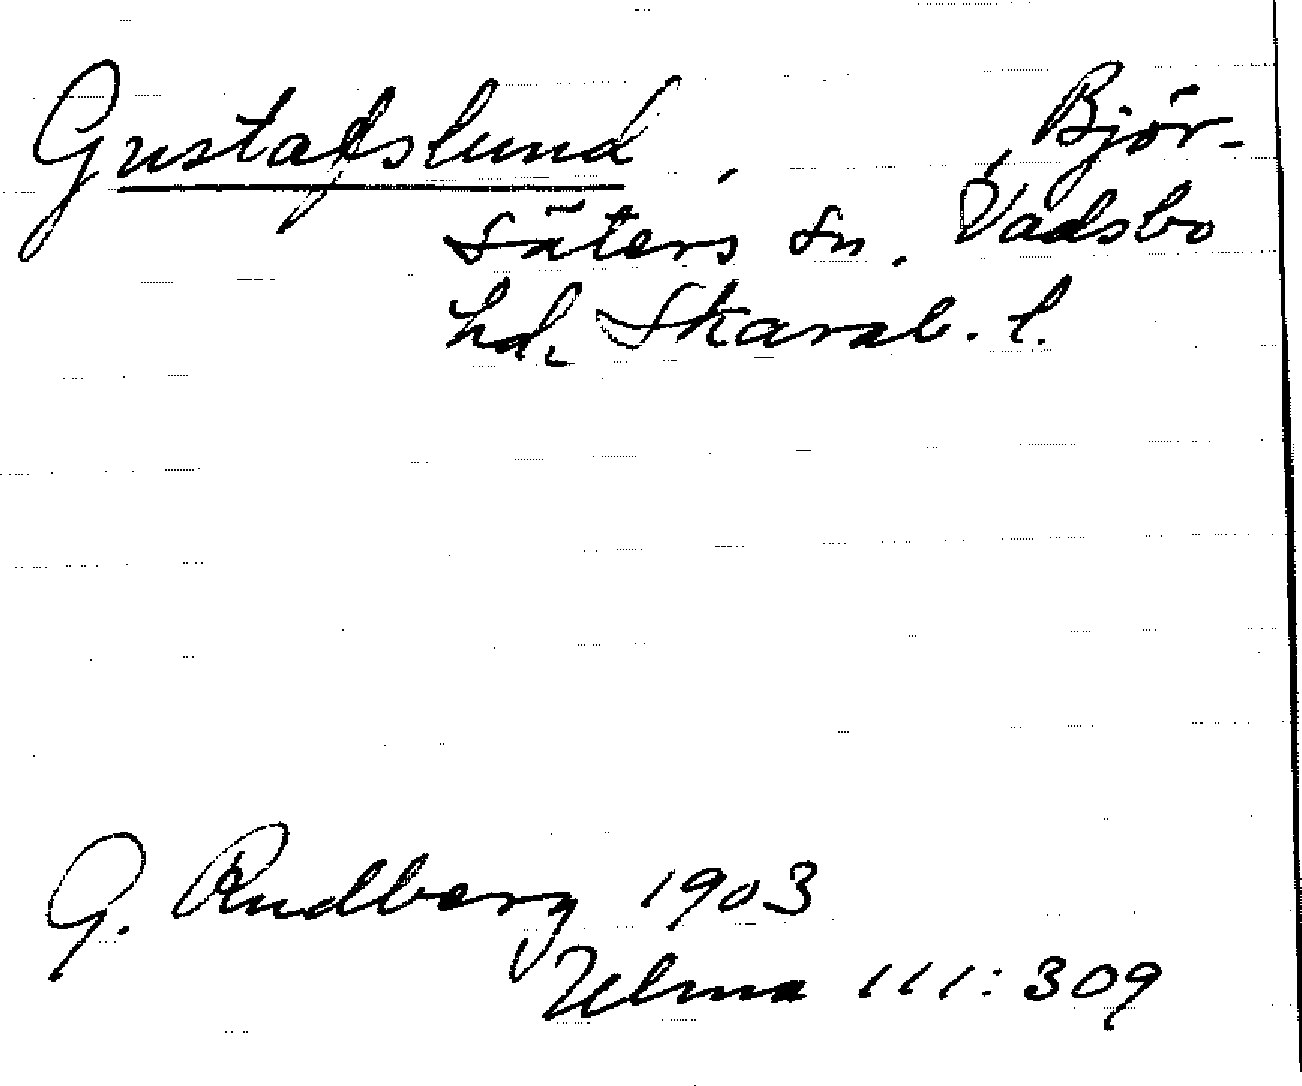 Gustafslund, Björ-
säters sn. Vadsbo
hd, Skarab. l.
G. Rudberg 1903
Ulma 111:309